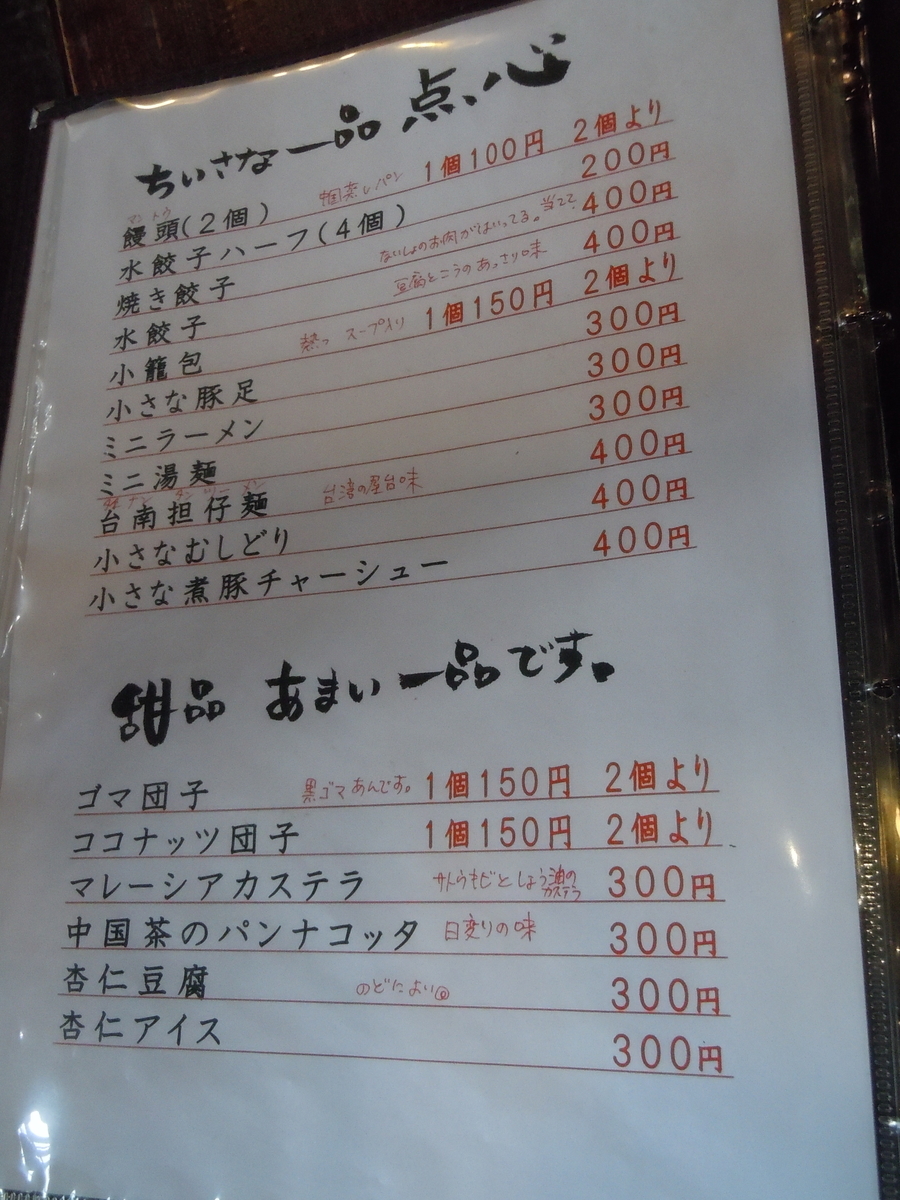 ちいさな一品 点心
マントウ
饅頭(2個) 中国蒸しパン 1個100円 2個より
水餃子ハーフ(4個) 200円
焼き餃子 ないしょのお肉がはいってる。当てて 400円
水餃子 豆腐と のあっさり味 400円
小籠包 熱っ スープ入り 1個150円 2個より
小さな豚足 300円
ミニラーメン 300円
ミニ湯麺 300円
タイナン タン ツー メン
台南担仔麺 台湾の屋台味 400円
小さなむしどり 400円
小さな煮豚チャーシュー 400円
甜品 あまい一品です。
ゴマ団子 黒ゴマあんです。 1個150円 2個より
ココナッツ団子 1個150円 2個より
マレーシアカステラ サトウキビとしょう油のカステラ 300円
中国茶のパンナコッタ 日変りの味 300円
杏仁豆腐 のどによい 300円
杏仁アイス 300円